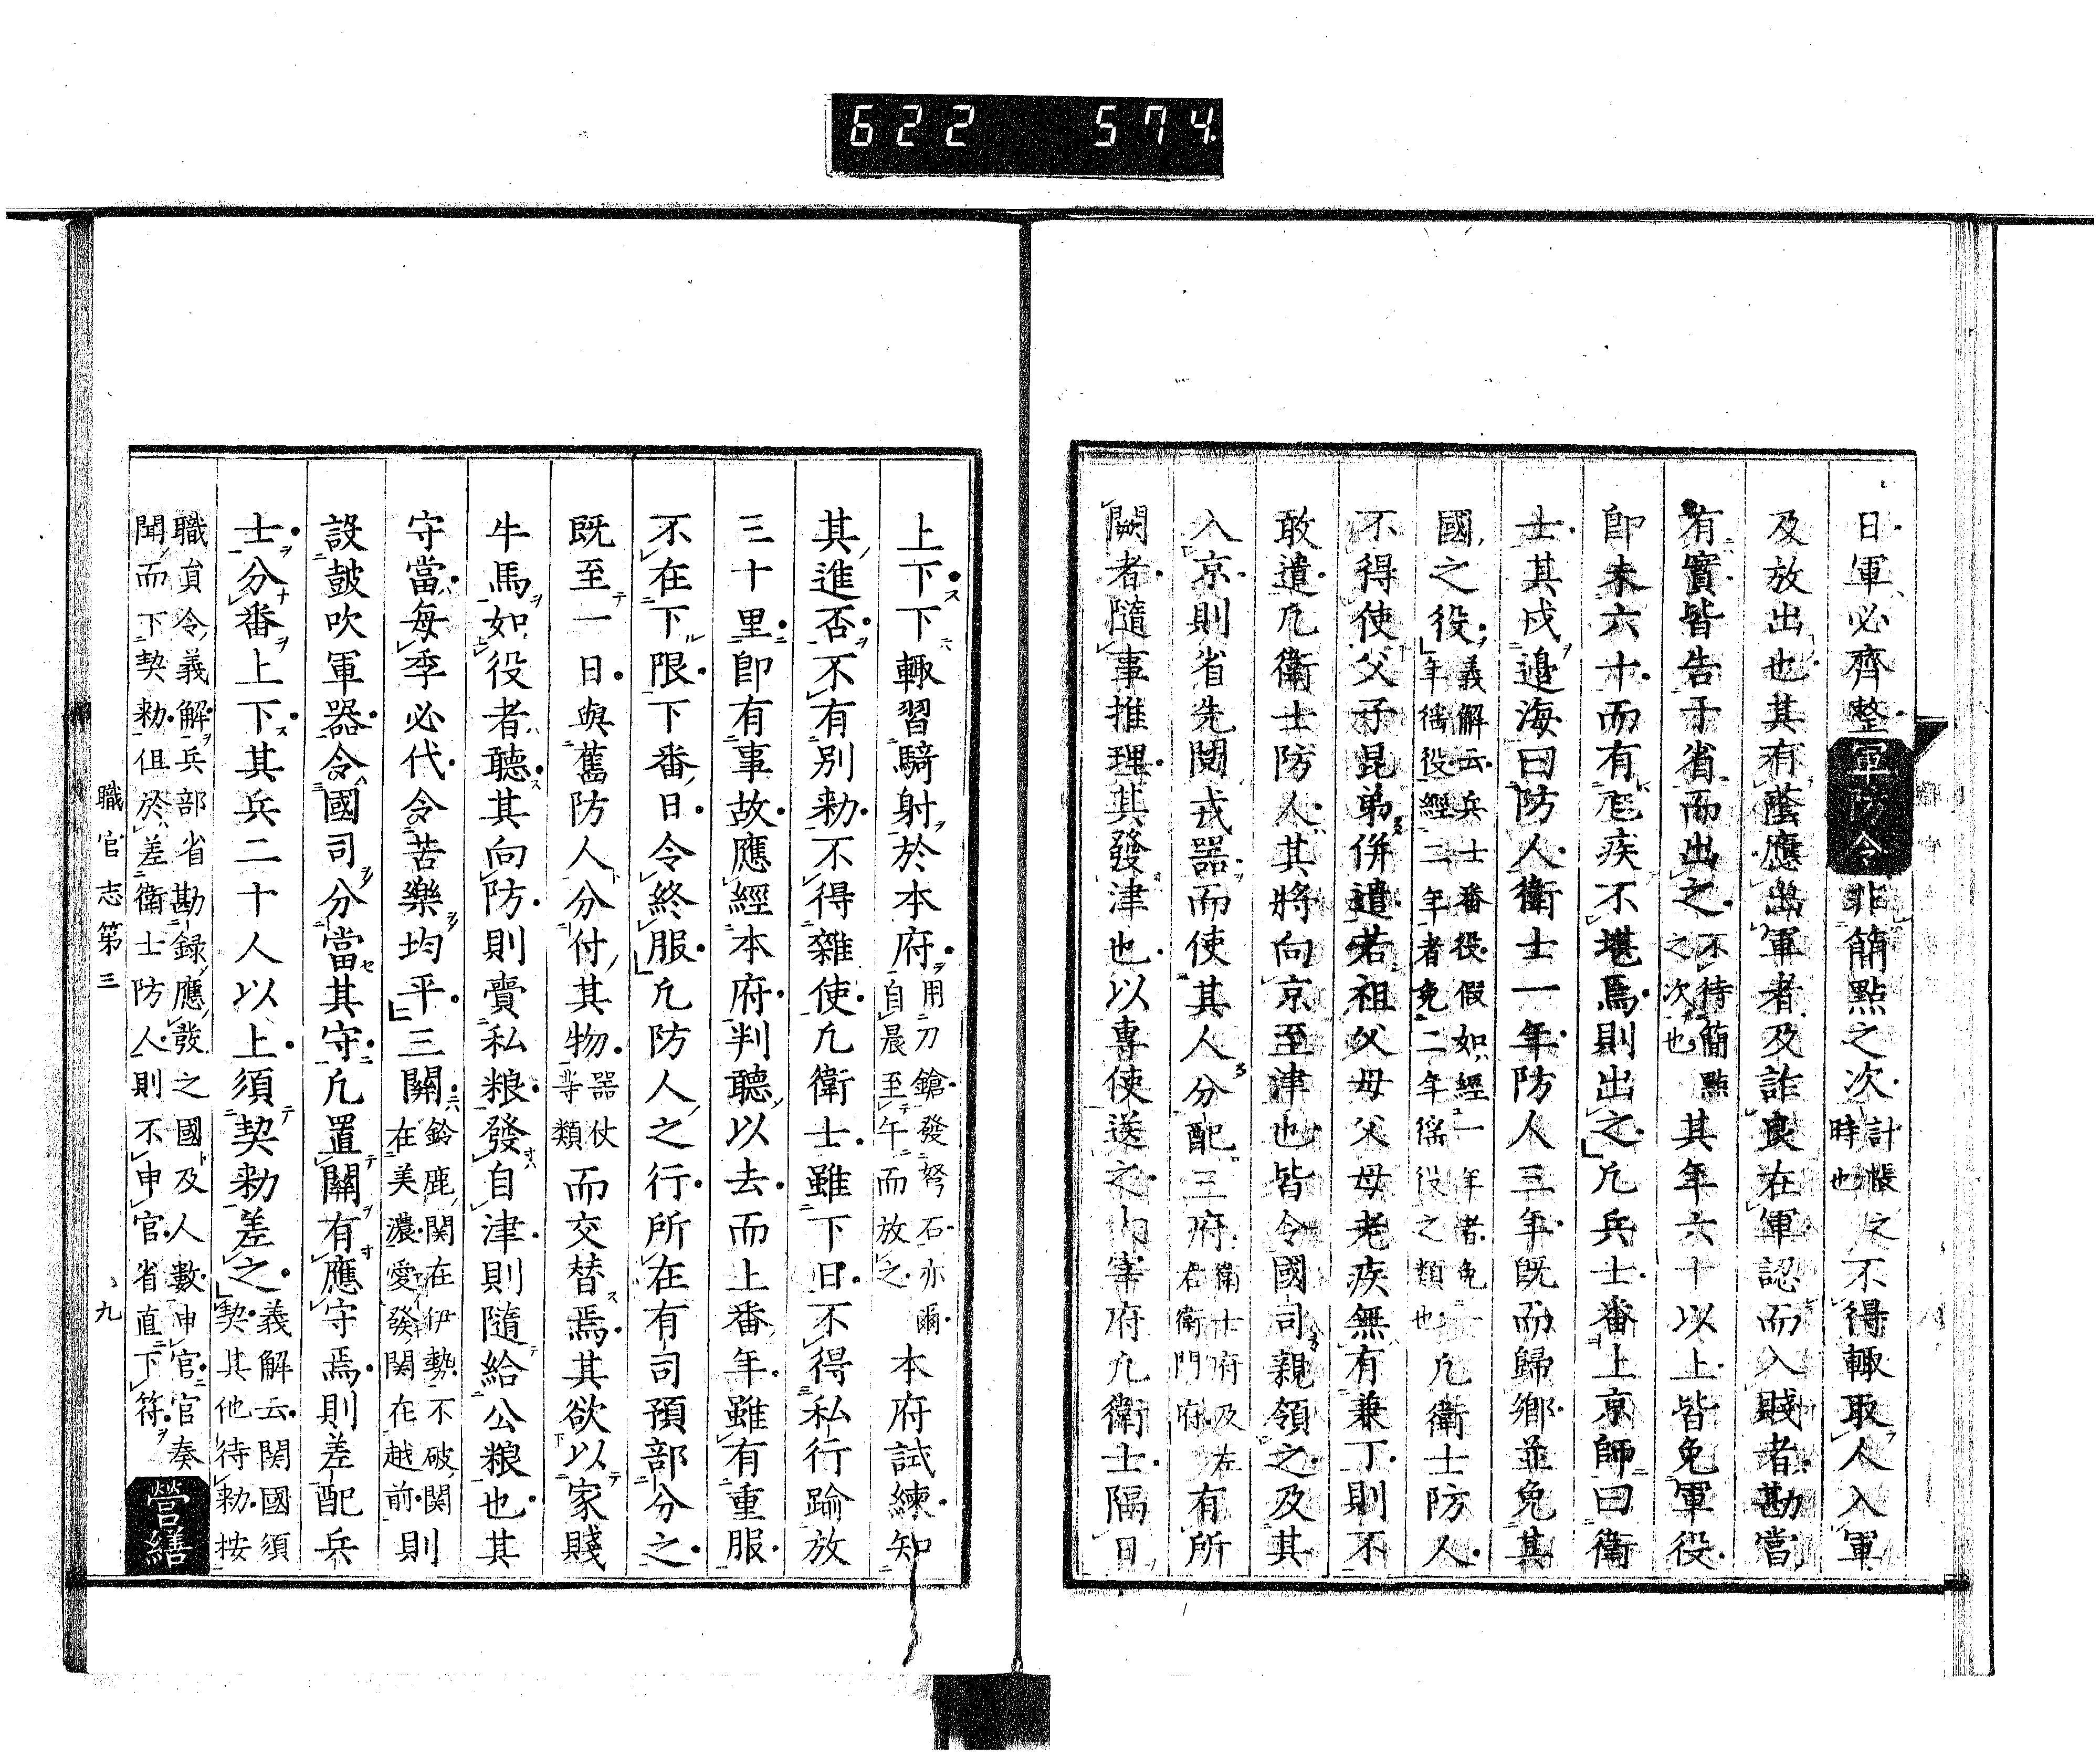 622 574
日軍必齊整軍防令非簡點之次計帳之時也不得輙取人入軍
及放出也其有蔭應出軍者及詐良在軍認而入賤者勘當
有實皆告于省而出之不待簡點之次也其年六十以上皆免軍役
卽未六十而有疾不堪焉則出之凡兵士番上京師曰衞
士其戍邉海曰防人衞士一年防人三年旣而歸鄕並免其
國之役義解云兵士番役假如經一年者免一年徭役經二年者免二年徭役之類也凡衞士防人
不得使父子昆弟併遣若祖父母父母老疾無有兼丁則不
敢遣凡衞士防人其將向京至津也皆令國司親領之及其
入京則省先閱戎器而使其人分配三府衞士府及左右衞門府有所
闕者隨事推理其發津也以專使送之大宰府凡衞士隔日
上下下輙習騎射於本府用刀鎗發弩石亦爾自晨至午而放之本府試練知
其進否不有別勅不得雜使凡衞士雖下日不得私行踰放
三十里卽有事故應經本府判聽以去而上番年雖有重服
不在下限下番日令終服凡防人之行所在有司預部分之
既至一日與舊防人分付其物器仗等類而交替焉其欲以家賤
牛馬如役者聽其向防則賷私粮發自津則隨給公粮也其
守當每季必代令苦樂均平三關鈴鹿関在伊勢不破関在美濃愛發関在越前則
設鼓吹軍器令國司分當其守凡置關有應守焉則差配兵
士分番上下其兵二十人以上須契勅差之義解云関國須契其他待勅按
職員令義解兵部省勘録應發之國及人數申官官奏
聞而下契勅但於差衞士防人則不申官省直下符營繕
職官志第三
九